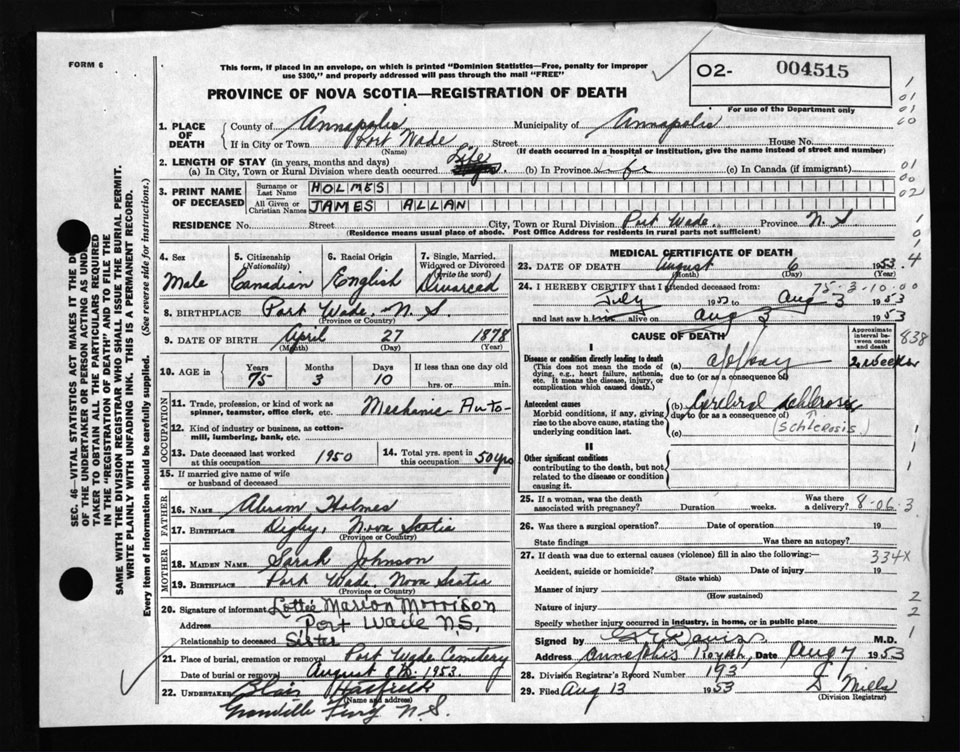 FORM 6
This form, if placed in an envelope, on which is printed "Dominion Statistics—Free, penalty for improper
use $300," and properly addressed will pass through the mail "FREE"
PROVINCE OF NOVA SCOTIA—REGISTRATION OF DEATH
O2- 004515
For use of the Department only
1. PLACE OF DEATH County of Annapolis Municipality of Annapolis
If in City or Town Port Wade Street House No.
(Name) (If death occurred in a hospital or institution, give the name instead of street and number)
2. LENGTH OF STAY (in years, months and days)
(a) In City, Town or Rural Division where death occurred Life (b) In Province Life (c) In Canada (if immigrant)
3. PRINT NAME OF DECEASED Surname or Last Name HOLMES
All Given or Christian Names JAMES ALLAN
RESIDENCE No. Street City, Town or Rural Division Port Wade Province N.S
(Residence means usual place of abode. Post Office Address for residents in rural parts not sufficient)
4. Sex Male
5. Citizenship (Nationality) Canadian
6. Racial Origin English
7. Single, Married, Widowed or Divorced (Write the word) Divorced
8. BIRTHPLACE Port Wade, N.S.
(Province or Country)
9. DATE OF BIRTH April 27 1878
(Month) (Day) (Year)
10. AGE in Years 75 Months 3 Days 10 If less than one day
hrs. or min.
OCCUPATION
11. Trade, profession, or kind of work as
spinner, teamster, office clerk, etc. Mechanic Auto-
12. Kind of industry or business, as cotton-
mill, lumbering, bank, etc.
13. Date deceased last worked
at this occupation 1950
14. Total yrs. spent in
this occupation 50 yrs
15. If married give name of wife
or husband of deceased
FATHER
16. Name Abram Holmes
17. Birthplace Digby, Nova Scotia
(Province or Country)
MOTHER
18. MAIDEN NAME Sarah Johnson
19. BIRTHPLACE Port Wade, Nova Scotia
(Province or Country)
20. Signature of informant Lottie Marion Morrison
Address Port Wade N.S,
Relationship to deceased Sister
21. Place of burial, cremation or removal Port Wade Cemetery
Date of burial or removal August 8th. 1953.
22. UNDERTAKER Blair Hatfield
(Name and address)
Granville Ferry N.S.
MEDICAL CERTIFICATE OF DEATH
23. DATE OF DEATH August 6 1953
(Month) (Day) (Year)
24. I HEREBY CERTIFY that I attended deceased from:
75-3-10.00
July 19 to Aug 3 1953
and last saw him alive on Aug 3 1953
CAUSE OF DEATH
Approximate interval between onset and death
838
I
Disease or condition directly leading to death
(This does not mean the mode of dying, e.g., heart failure, asthenia, etc. It means the disease, injury, or complication which caused death.)
(a) 2 weeks
due to (or as a consequence of)
Antecedent causes
Morbid conditions, if any, giving rise to the above cause, stating the underlying condition last.
(b) Cerebral
due to (or as a consequence of)
(c)
II
Other significant conditions
contributing to the death, but not related to the disease or condition causing it.
25. If a woman, was the death
associated with pregnancy? Duration weeks. Was there a delivery?
8-06.3
26. Was there a surgical operation? Date of operation 19
State findings Was there an autopsy?
27. If death was due to external causes (violence) fill in also the following:
334X
Accident, suicide or homicide? Date of injury 19
(State which)
Manner of injury
(How sustained)
Nature of injury
Specify whether injury occurred in industry, in home, or in public place
Signed by M.D.
Address Royal, Date Aug 7 1953
28. Division Registrar's Record Number 193
29. Filed Aug 13 1953 D. Mills
(Division Registrar)
SEC. 46—VITAL STATISTICS ACT MAKES IT THE
OF THE UNDERTAKER OR PERSON ACTING AS
TAKER TO OBTAIN ALL THE PARTICULARS REQUIRED
IN THE "REGISTRATION OF DEATH" AND TO FILE THE
SAME WITH THE DIVISION REGISTRAR WHO SHALL ISSUE THE BURIAL PERMIT.
WRITE PLAINLY WITH UNFADING INK. THIS IS A PERMANENT RECORD.
Every item of information should be carefully supplied. (See reverse side for instructions.)